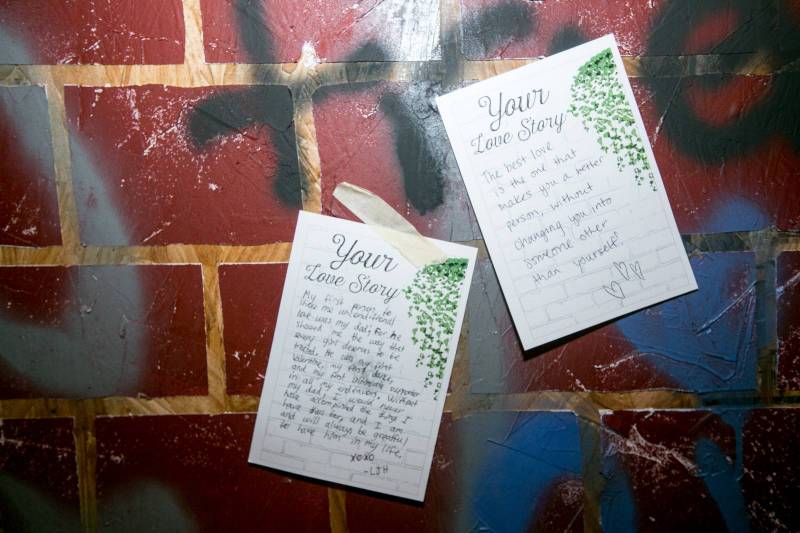 Your
Love Story
My first person to
show me unconditional
love was my dad, for he
showed me the way that
every girl deserves to be
treated. He was my first
Valentine, my first dance,
and my first supporter
in all my endeavors. Without
my dad, I would never
have accomplished the things I
have thus far, and I am
and will always be grateful
to have him in my life.
xoxo
-LJH
Your
Love Story
The best love
is the one that
makes you a better
person, without
changing you into
someone other
than yourself."